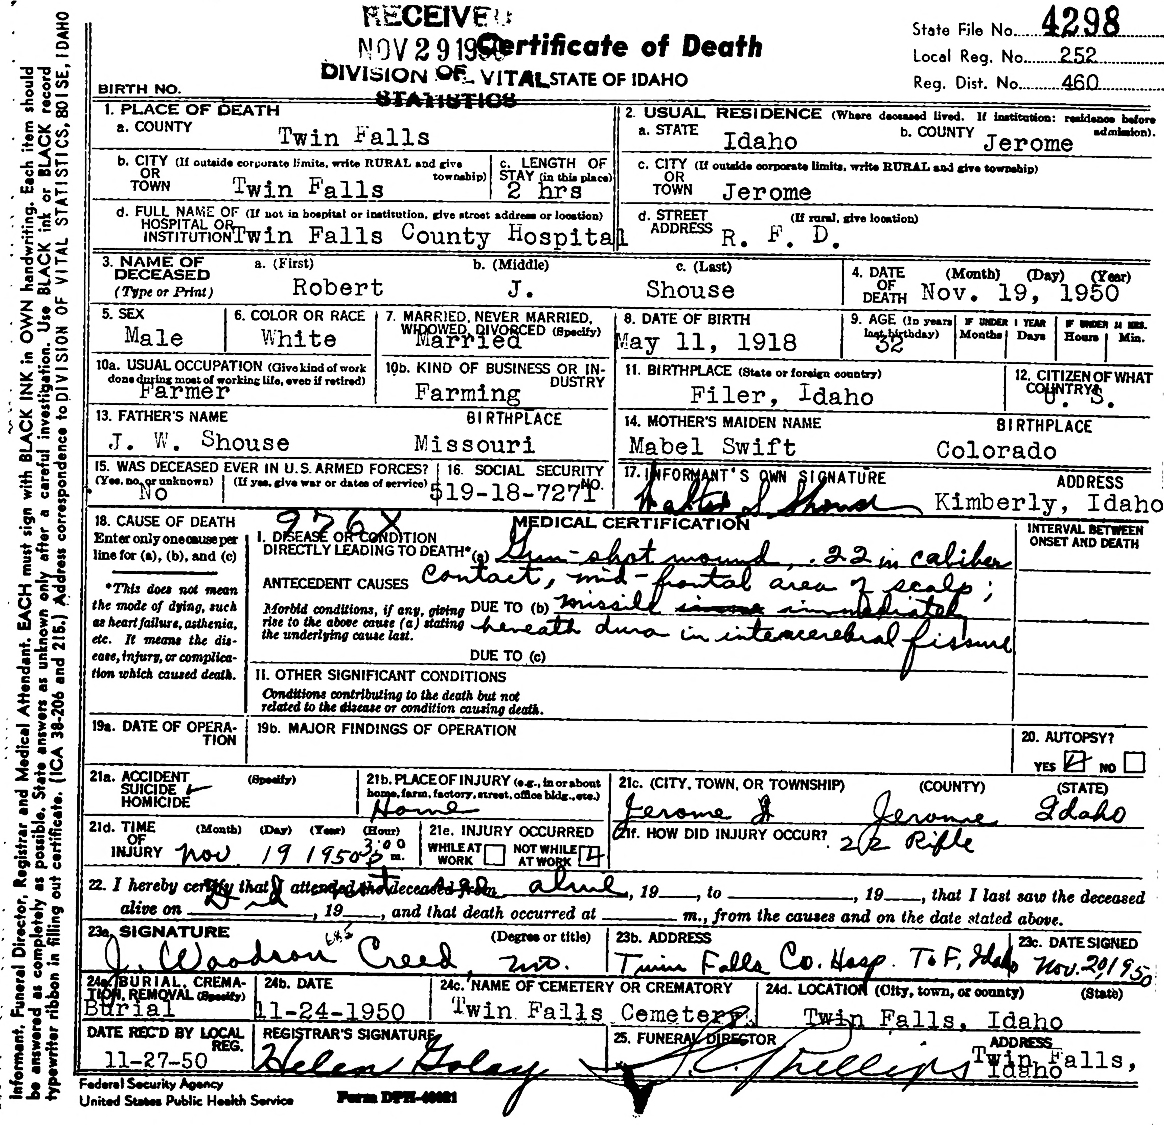 RECEIVED
NOV 29 1950 Certificate of Death
DIVISION OF VITAL STATE OF IDAHO
STATISTICS
State File No. 4298
Local Reg. No. 252
Reg. Dist. No. 460
BIRTH NO.
1. PLACE OF DEATH
a. COUNTY
Twin Falls
2. USUAL RESIDENCE (Where deceased lived. If institution: residence before admission).
a. STATE Idaho b. COUNTY Jerome
b. CITY (If outside corporate limits, write RURAL and give township)
OR
TOWN Twin Falls
c. LENGTH OF
STAY (in this place)
2 hrs
c. CITY (If outside corporate limits, write RURAL and give township)
OR
TOWN Jerome
d. FULL NAME OF (If not in hospital or institution, give street address or location)
HOSPITAL OR
INSTITUTION Twin Falls County Hospital
d. STREET (If rural, give location)
ADDRESS R. F. D.
3. NAME OF
DECEASED
(Type or Print)
a. (First) b. (Middle) c. (Last)
Robert J. Shouse
4. DATE (Month) (Day) (Year)
OF
DEATH Nov. 19, 1950
5. SEX
Male
6. COLOR OR RACE
White
7. MARRIED, NEVER MARRIED,
WIDOWED, DIVORCED (Specify)
Married
8. DATE OF BIRTH
May 11, 1918
9. AGE (In years
last birthday)
32
IF UNDER 1 YEAR
Months Days
IF UNDER 24 HRS.
Hours Min.
10a. USUAL OCCUPATION (Give kind of work
done during most of working life, even if retired)
Farmer
10b. KIND OF BUSINESS OR IN-
DUSTRY
Farming
11. BIRTHPLACE (State or foreign country)
Filer, Idaho
12. CITIZEN OF WHAT
COUNTRY?
U. S.
13. FATHER'S NAME BIRTHPLACE
J. W. Shouse Missouri
14. MOTHER'S MAIDEN NAME BIRTHPLACE
Mabel Swift Colorado
15. WAS DECEASED EVER IN U.S. ARMED FORCES?
(Yes, no, or unknown) (If yes, give war or dates of service)
No
16. SOCIAL SECURITY
NO.
519-18-7271
17. INFORMANT'S OWN SIGNATURE ADDRESS
Walter S Shouse Kimberly, Idaho
18. CAUSE OF DEATH
Enter only one cause per
line for (a), (b), and (c)
*This does not mean
the mode of dying, such
as heart failure, asthenia,
etc. It means the dis-
ease, injury, or complica-
tion which caused death.
976X
MEDICAL CERTIFICATION
INTERVAL BETWEEN
ONSET AND DEATH
I. DISEASE OR CONDITION
DIRECTLY LEADING TO DEATH* (a) Gun-shot wound, .22 in caliber
ANTECEDENT CAUSES contact, mid-frontal area of scalp;
Morbid conditions, if any, giving DUE TO (b) missile immediately
rise to the above cause (a) stating beneath dura in intercerebral fissure
the underlying cause last.
DUE TO (c)
II. OTHER SIGNIFICANT CONDITIONS
Conditions contributing to the death but not
related to the disease or condition causing death.
19a. DATE OF OPERA-
TION
19b. MAJOR FINDINGS OF OPERATION
20. AUTOPSY?
YES NO
21a. ACCIDENT (Specify)
SUICIDE
HOMICIDE
21b. PLACE OF INJURY (e.g., in or about
home, farm, factory, street, office bldg., etc.)
Home
21c. (CITY, TOWN, OR TOWNSHIP) (COUNTY) (STATE)
Jerome Jerome Idaho
21d. TIME (Month) (Day) (Year) (Hour)
OF
INJURY Nov. 19 1950 3:00 P m.
21e. INJURY OCCURRED
WHILE AT WORK NOT WHILE AT WORK
21f. HOW DID INJURY OCCUR?
22 Rifle
22. I hereby certify that I attended the deceased from alive, 19___, to ___, 19___, that I last saw the deceased
Did not see
alive on ___, 19___, and that death occurred at ___ m., from the causes and on the date stated above.
23a. SIGNATURE (Degree or title)
J. Woodson Creed, MD.
23b. ADDRESS
Twin Falls Co. Hosp. T. F, Idaho
23c. DATE SIGNED
Nov. 20, 1950
24a. BURIAL, CREMA-
TION, REMOVAL (Specify)
Burial
24b. DATE
11-24-1950
24c. NAME OF CEMETERY OR CREMATORY
Twin Falls Cemetery
24d. LOCATION (City, town, or county) (State)
Twin Falls, Idaho
DATE REC'D BY LOCAL
REG.
11-27-50
REGISTRAR'S SIGNATURE
Helen Golay
25. FUNERAL DIRECTOR ADDRESS
Phillips Twin Falls,
Idaho
Federal Security Agency
United States Public Health Service
Informant, Funeral Director, Registrar and Medical Attendant. EACH must sign with BLACK INK in OWN handwriting. Each item should
be answered as completely as possible. State answers as unknown only after a careful investigation. Use BLACK ink or BLACK record
typewriter ribbon in filling out certificate. (ICA 38-206 and 215.) Address correspondence to DIVISION OF VITAL STATISTICS, BOISE, IDAHO